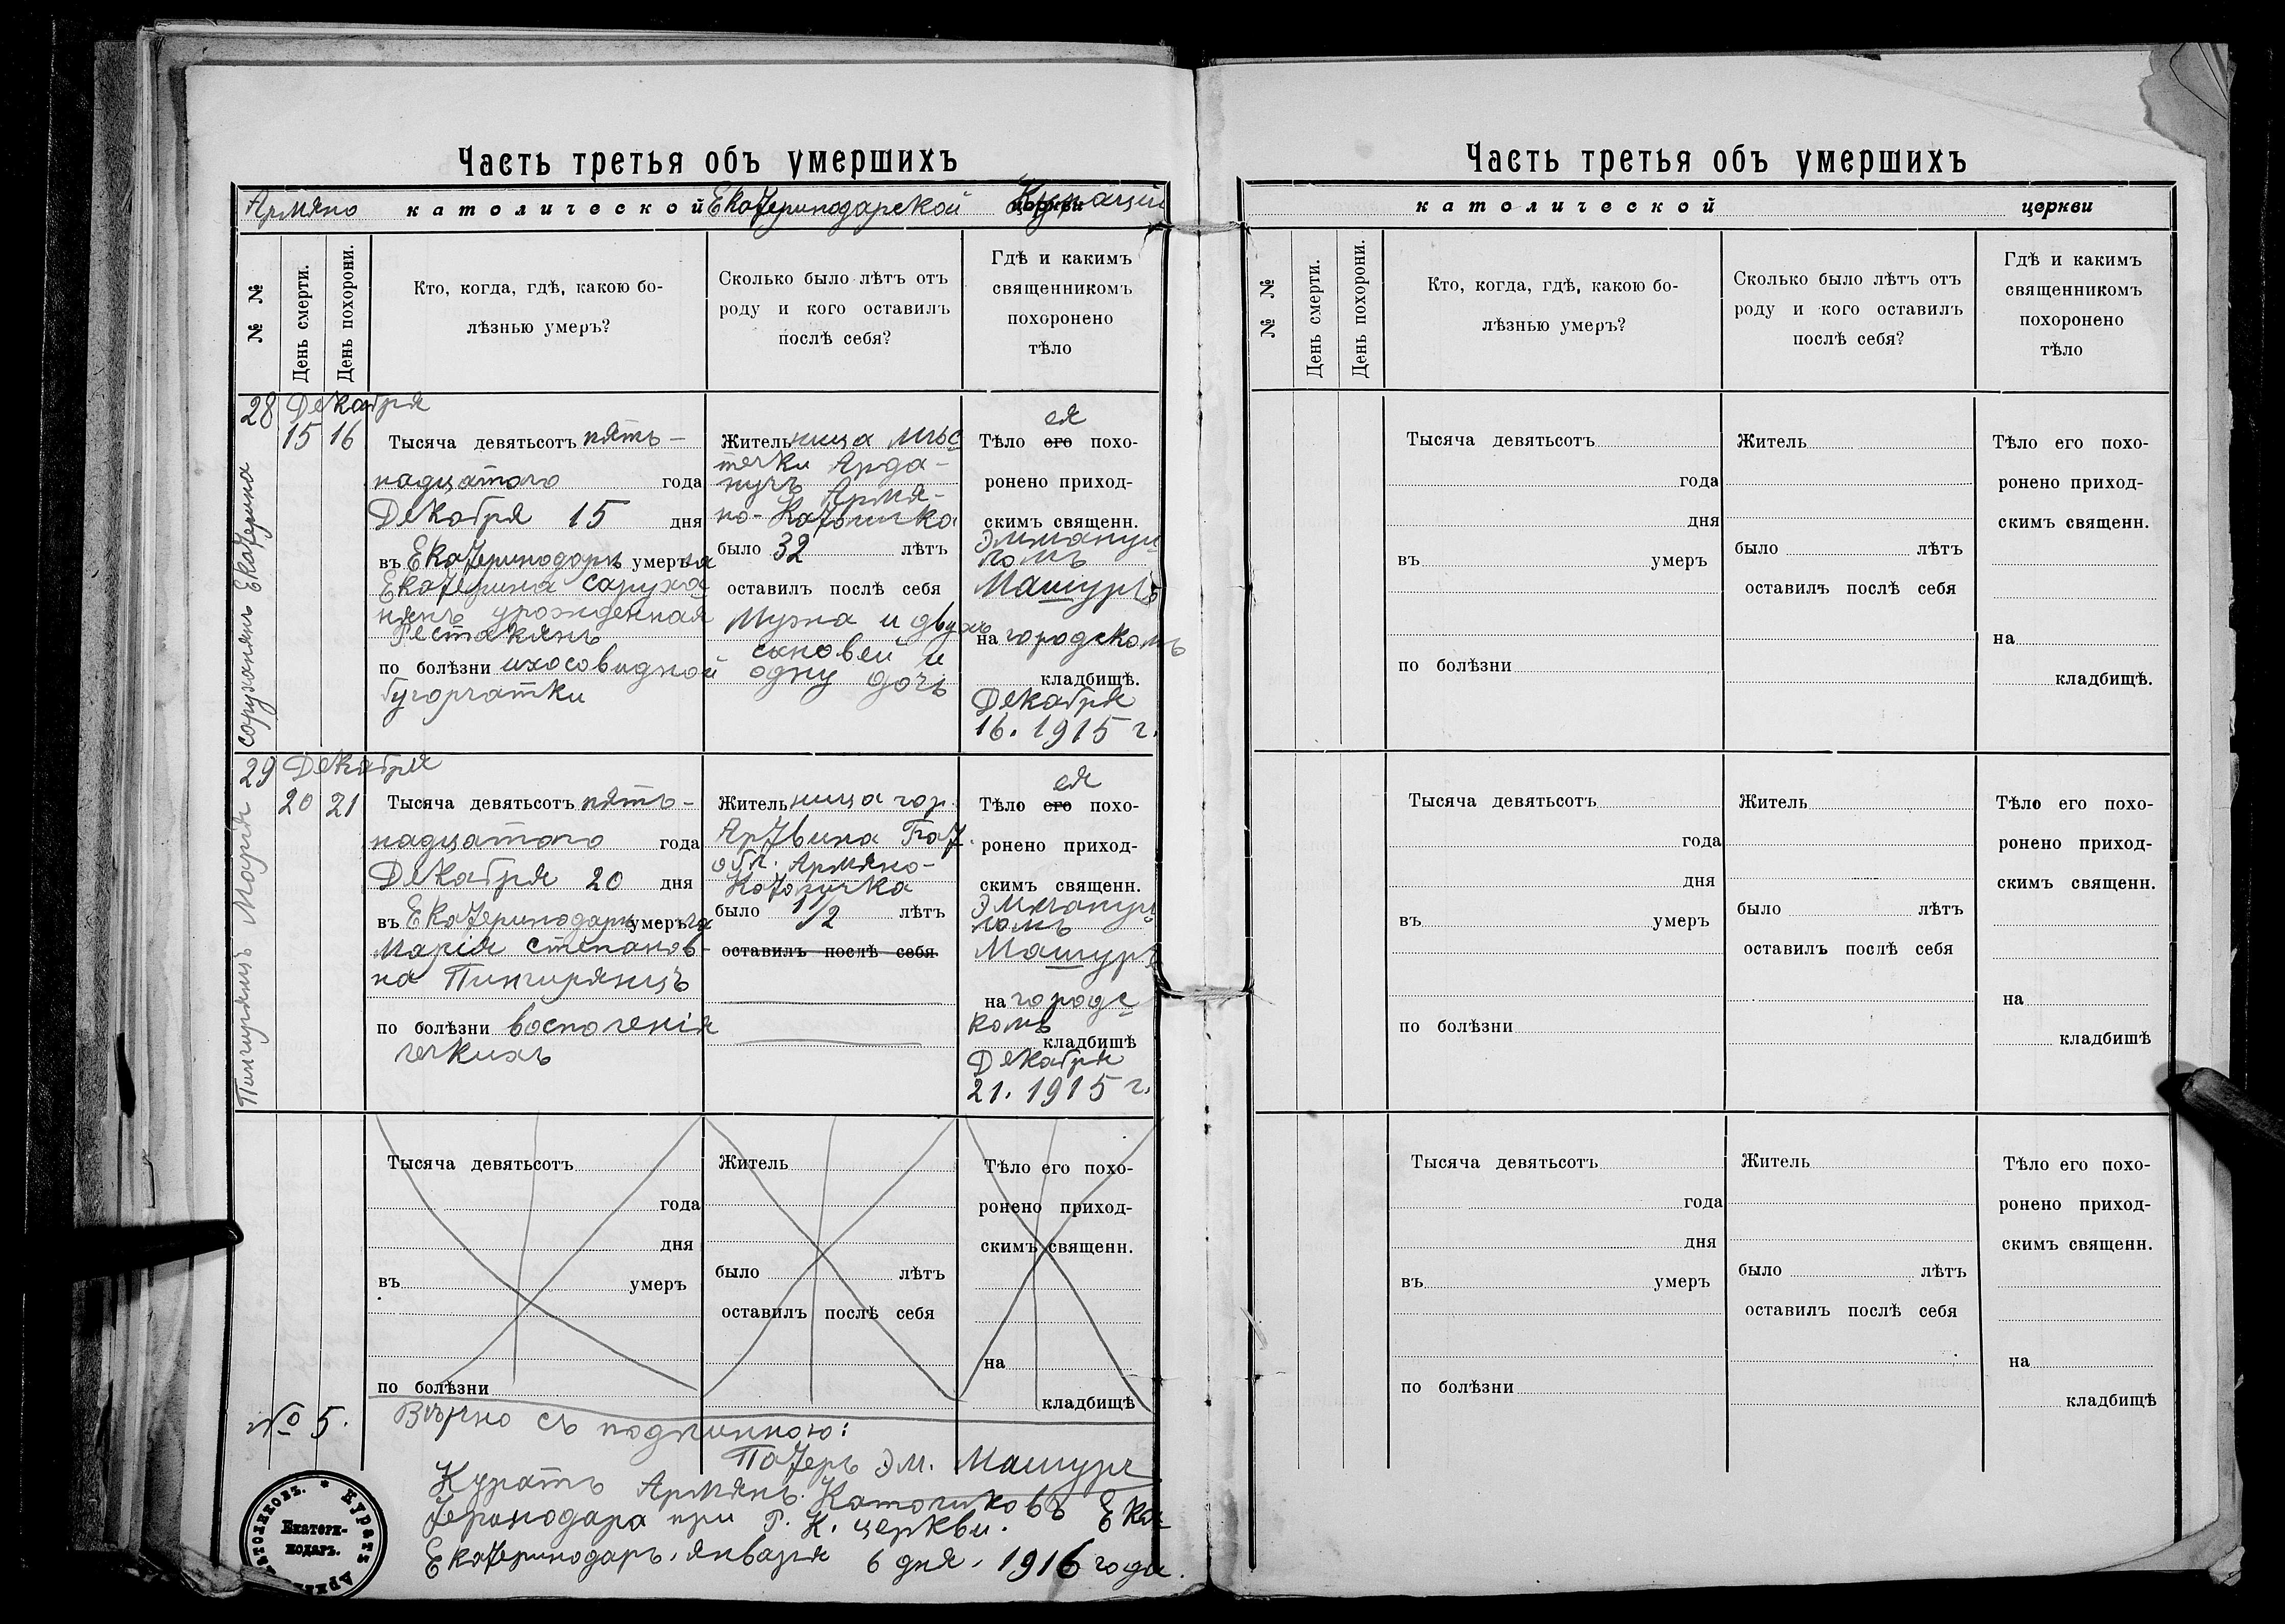 Часть третья объ умершихъ
Армяно католической Екатеринодарской Курацiи церкви
№ №
День смерти.
День похорони.
Кто, когда, гдѣ, какою бо-
лѣзнью умеръ?
Сколько было лѣтъ отъ
роду и кого оставилъ
послѣ себя?
Гдѣ и какимъ
священникомъ
похоронено
тѣло
28
Саруханянъ Екатерина
Декабря
15 16
Тысяча девятьсотъ пять-
надцатого года
Декабря 15 дня
въ Екатеринодарѣ умерла
Екатерина Саруха
нянъ урожденная
по болѣзни
бугорчатки
Жительница мѣс
течки Арда-
нучъ Армя-
но-Католичка
было 32 лѣтъ
оставилъ послѣ себя
Мужа и двухъ
сыновей и
одну дочь
ея
Тѣло его похо-
ронено приход-
скимъ священн.
Эммануи
ломъ
Машуръ
на городскомъ
кладбищѣ.
Декабря
16. 1915 г.
29
Пингирянцъ Марiя
Декабря
20 21
Тысяча девятьсотъ пять-
надцатого года
Декабря 20 дня
въ Екатеринодарѣ умерла
Марiя Степанов-
на Пингирянцъ
по болѣзни восполенiя
легкихъ
Жительница гор.
Артвина Бат.
обл. Армяно-
Католичка
было 1/2 лѣтъ
оставилъ послѣ себя
ея
Тѣло его похо-
ронено приход-
скимъ священн.
Эммануи
ломъ
Машуръ
на городс
комъ
кладбишѣ
Декабря
21. 1915 г.
Тысяча девятьсотъ
года
дня
въ умеръ
по болѣзни
Житель
было лѣтъ
оставилъ послѣ себя
Тѣло его похо-
ронено приход-
скимъ священн.
на
кладбищѣ
№ 5.
Вѣрно съ подлинною:
Патеръ Эм. Машуръ
Куратъ Армянъ Католиковъ Ека
теринодара при Р. К. церкви.
Екатеринодаръ, января 6 дня, 1916 года.
Куратъ
Екатери-
нодаръ.
Часть третья объ умершихъ
католической церкви
№ №
День смерти.
День похорони.
Кто, когда, гдѣ, какою бо-
лѣзнью умеръ?
Сколько было лѣтъ отъ
роду и кого оставилъ
послѣ себя?
Гдѣ и какимъ
священникомъ
похоронено
тѣло
Тысяча девятьсотъ
года
дня
въ умеръ
по болѣзни
Житель
было лѣтъ
оставилъ послѣ себя
Тѣло его похо-
ронено приход-
скимъ священн.
на
кладбищѣ.
Тысяча девятьсотъ
года
дня
въ умеръ
по болѣзни
Житель
было лѣтъ
оставилъ послѣ себя
Тѣло его похо-
ронено приход-
скимъ священн.
на
кладбишѣ
Тысяча девятьсотъ
года
дня
въ умеръ
по болѣзни
Житель
было лѣтъ
оставилъ послѣ себя
Тѣло его похо-
ронено приход-
скимъ священн.
на
кладбищѣ